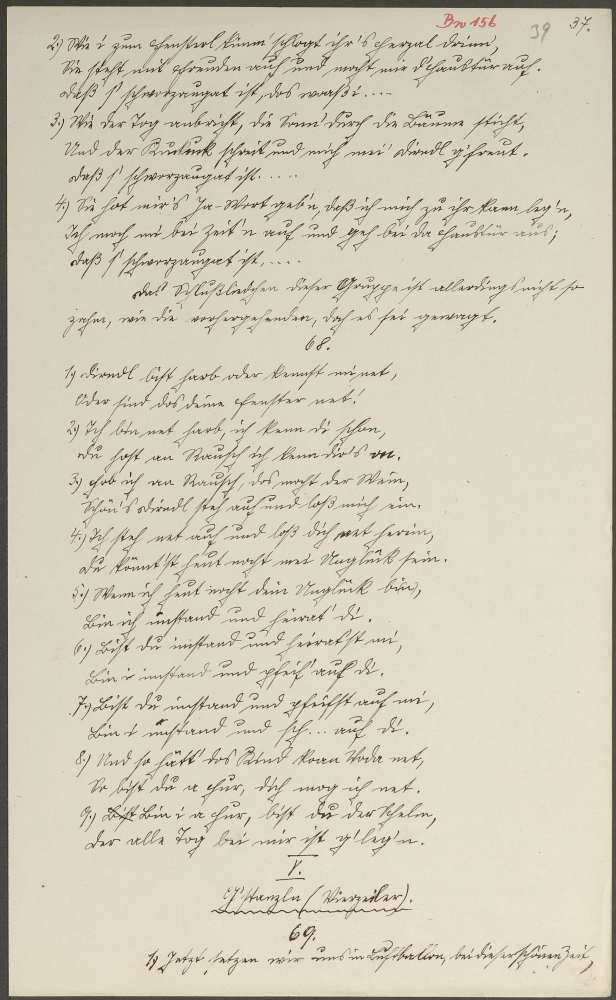 Bw 156 39 37.
2.) Wie i zum Fensterl kimm' schlogt ihr's Herzal drinn',
Sie steht mit Freuden auf und mocht mir d'Haustür auf.
Daß s' schworzaugat ist, dos waaß i....
3.) Wie der Tog anbricht, die Sonn' durch die Bäume sticht,
Und der Kuckuck schreit und mich mei Dirndl g'freut.
Daß s' schworzaugat ist.....
4.) Sie hot mir's Ja-Wort geb'n, daß ich mich zu ihr kann leg'n,
Ich moch mi bei Zeit'n auf und geh bei da Haustür aus;
Daß s' schworzaugat ist,....
Das Schlußliedchen dieser Gruppe ist allerdings nicht so
zahm, wie die vorhergehenden, doch es sei gewagt.
68.
1.) Dirndl bist harb oder kennst mi net,
Oder sind dos deine Fenster net!
2.) Ich bin net harb, ich kenn di schon,
Du host an Rausch ich kenn dir's on.
3.) Hob ich an Rausch, dos mocht der Wein,
Schön's Dirndl steh auf und loß mich ein.
4.) Ich steh net auf und loß dich net herein,
Du könntst heut nocht mei Unglück sein.
5.) Wenn ich heut nocht dein Unglück bin,
Bin ich imstand und heirat' di.
6.) Bist du imstand und heiratst mi,
Bin i imstand und pfeif' auf di.
7.) Bist du imstand und pfeifst auf mi,
Bin i imstand und sch... auf di.
8.) Und so hätt' dos Kind koan Voda net,
So bist du a Hur, dich mog ich net.
9.) Bist Bin i a Hur, bist du der Schelm,
Der alle Tog bei mir ist g'leg'n.
V.
G'stanzln (Vierzeiler).
69.
1.) Jetzt setzen wir uns in Luftballon, bei dieser schönen Zeit,